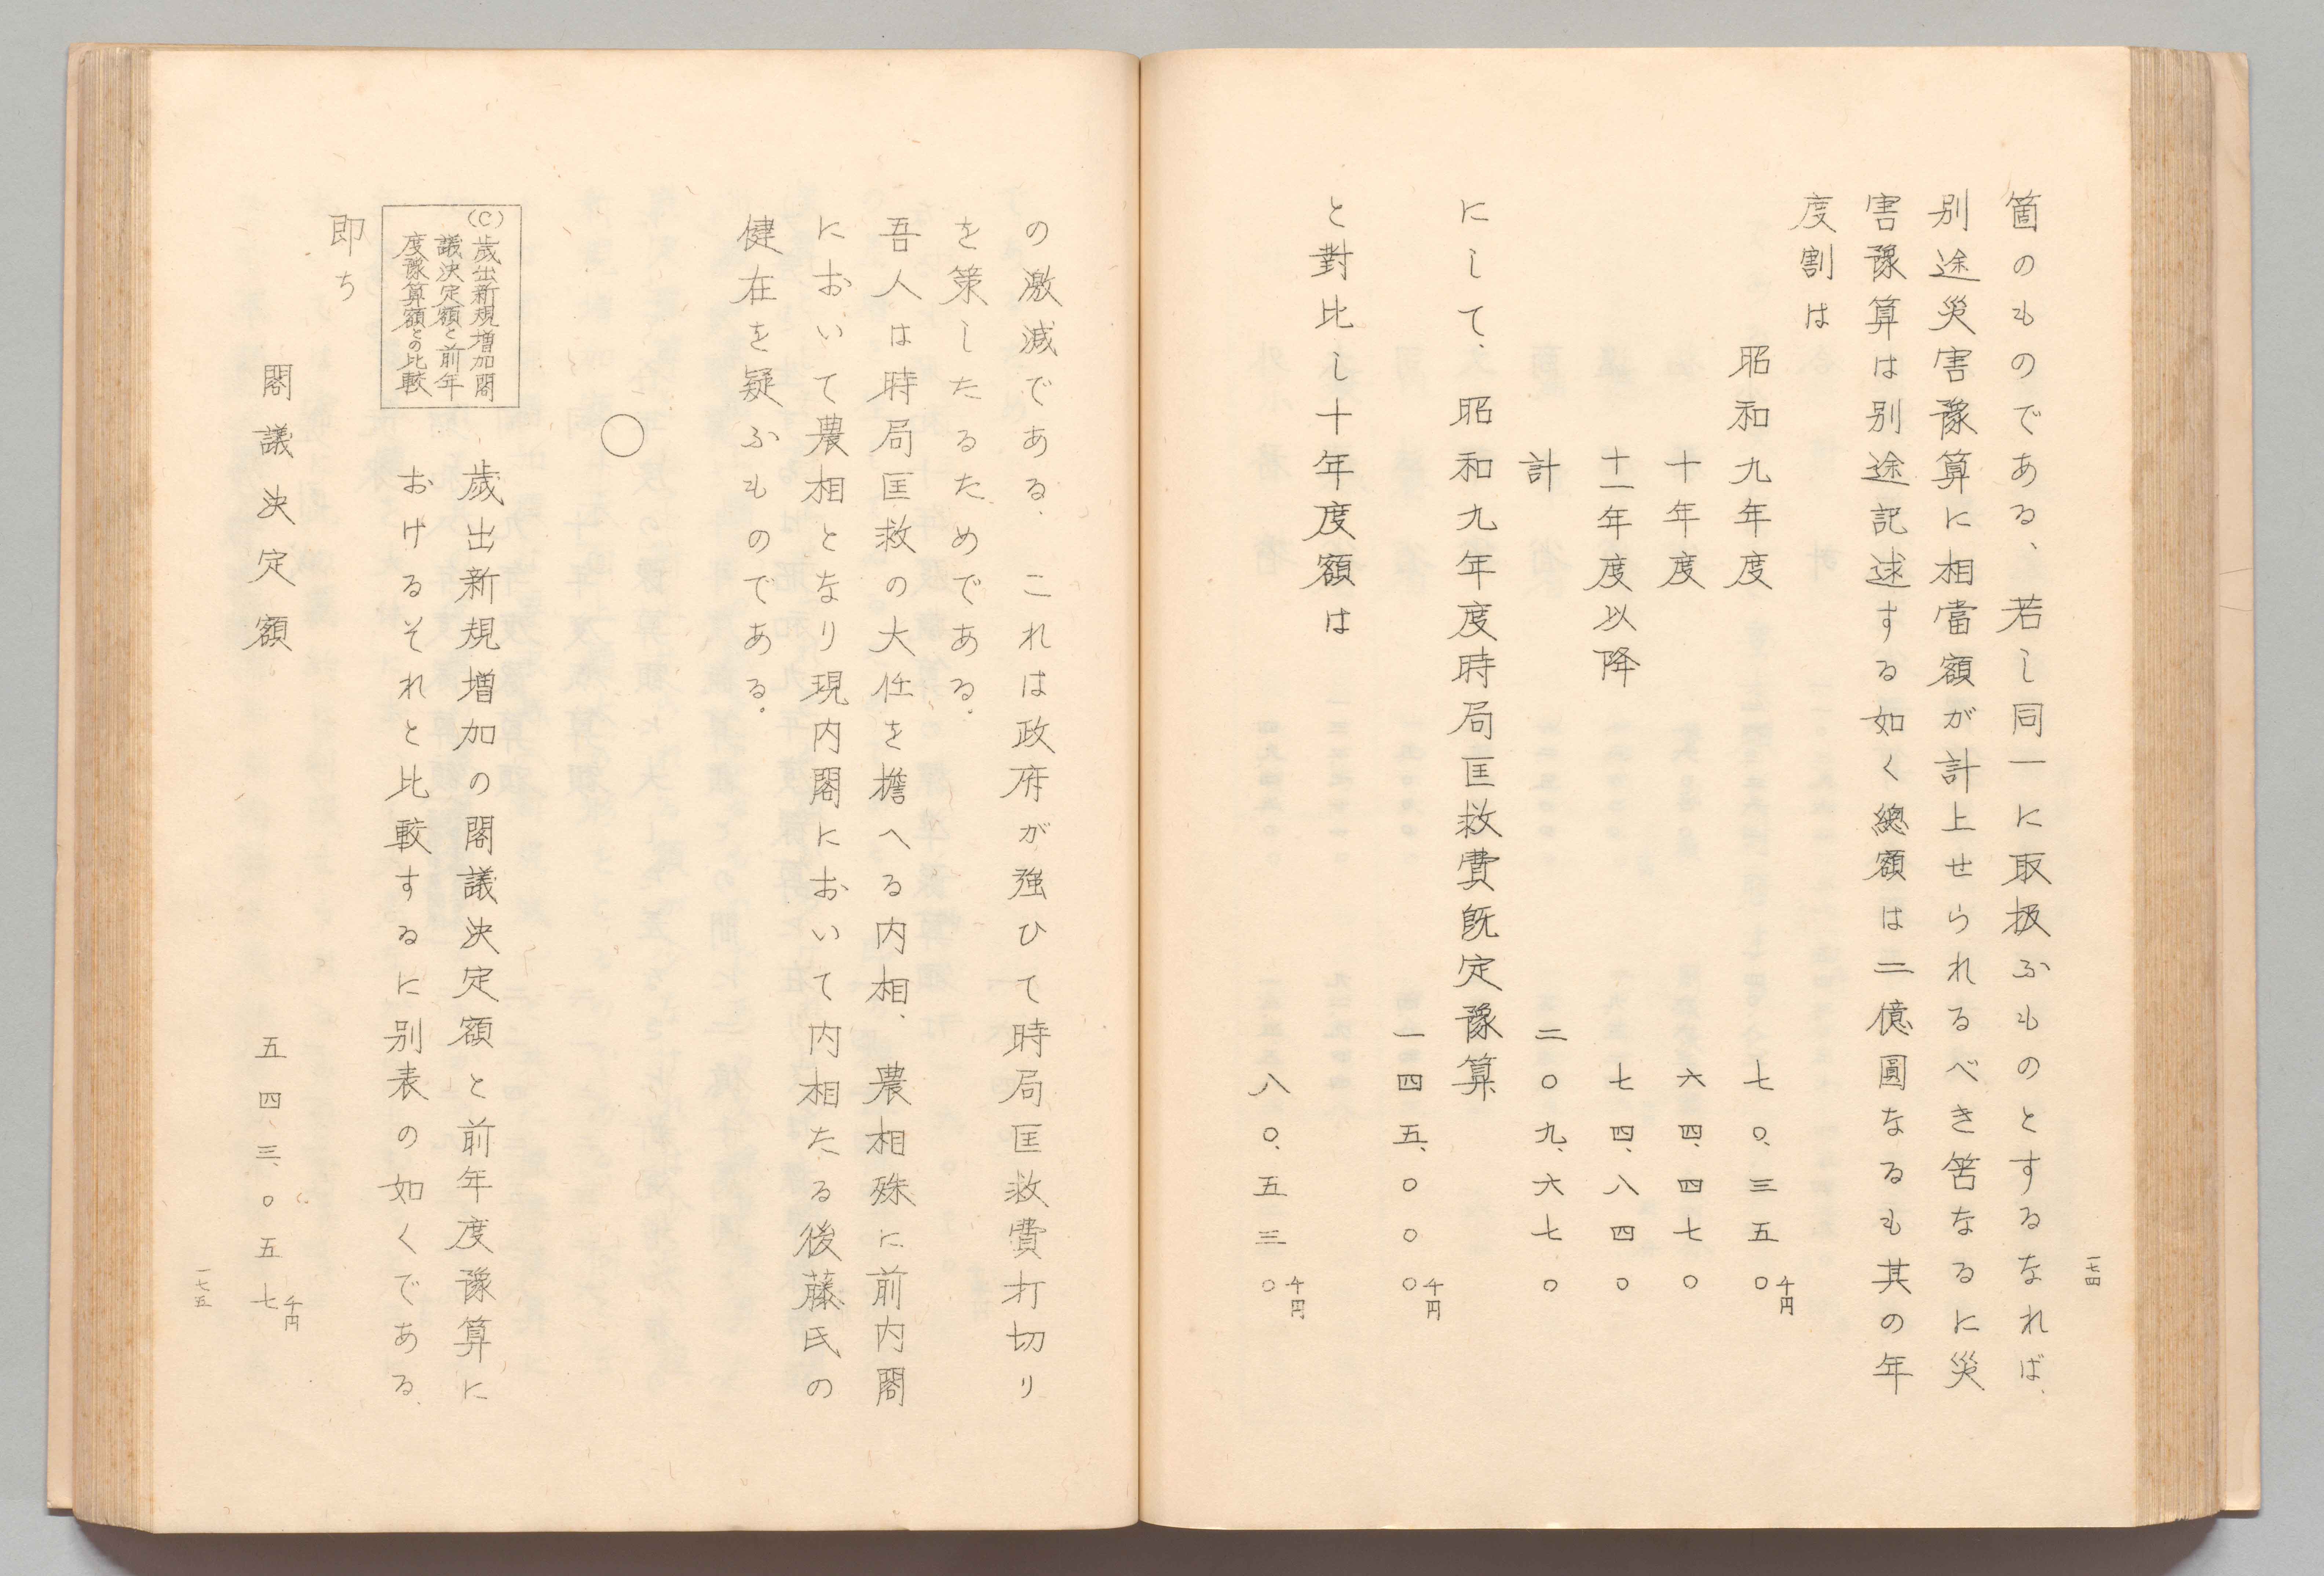 一七四
箇のものである、若し同一に取扱ふものとするなれば、
別途災害豫算に相當額が計上せられるべき筈なるに災
害豫算は別途記述する如く總額は二億圓なるも其の年
度割は
昭和九年度　七〇、三五〇千円
十年度　六四、四七〇
十一年度以降　七四、八四〇
計　二〇九、六七〇
にして、昭和九年度時局匡救費既定豫算
一四五、〇〇〇千円
と對比し十年度額は
八〇、五三〇千円
の激減である、これは政府が強ひて時局匡救費打切り
を策したるためである。
吾人は時局匡救の大任を擔へる内相、農相殊に前内閣
において農相となり現内閣において内相たる後藤氏の
健在を疑ふものである。
〇
(C)歳出新規増加閣
議決定額と前年
度豫算額との比較
歳出新規増加の閣議決定額と前年度豫算に
おけるそれと比較するに別表の如くである、
即ち
閣議決定額　五四三、〇五七千円
一七五